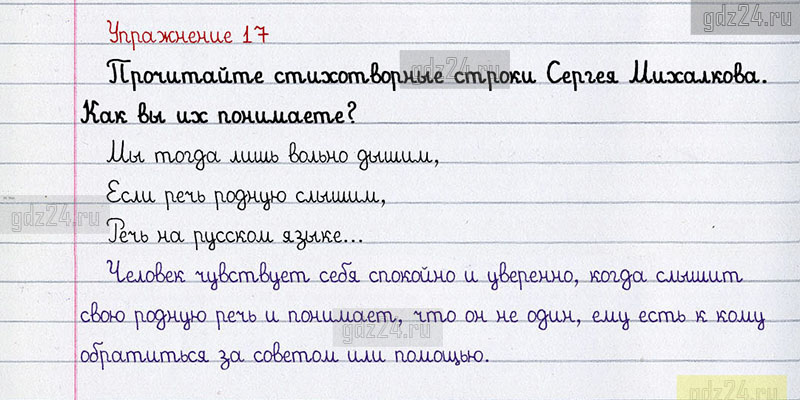 gdz24.ru
Упражнение 17
gdz24.ru
Прочитайте стихотворные строки Сергея Михалкова.
Как вы их понимаете?
Мы тогда лишь вольно дышим,
Если речь родную слышим,
gdz24.ru
Речь на русском языке...
Человек чувствует себя спокойно и уверенно, когда слышит
свою родную речь и понимает, что он не один, ему есть к кому
gdz24.ru
обратиться за советом или помощью.
gdz24.ru